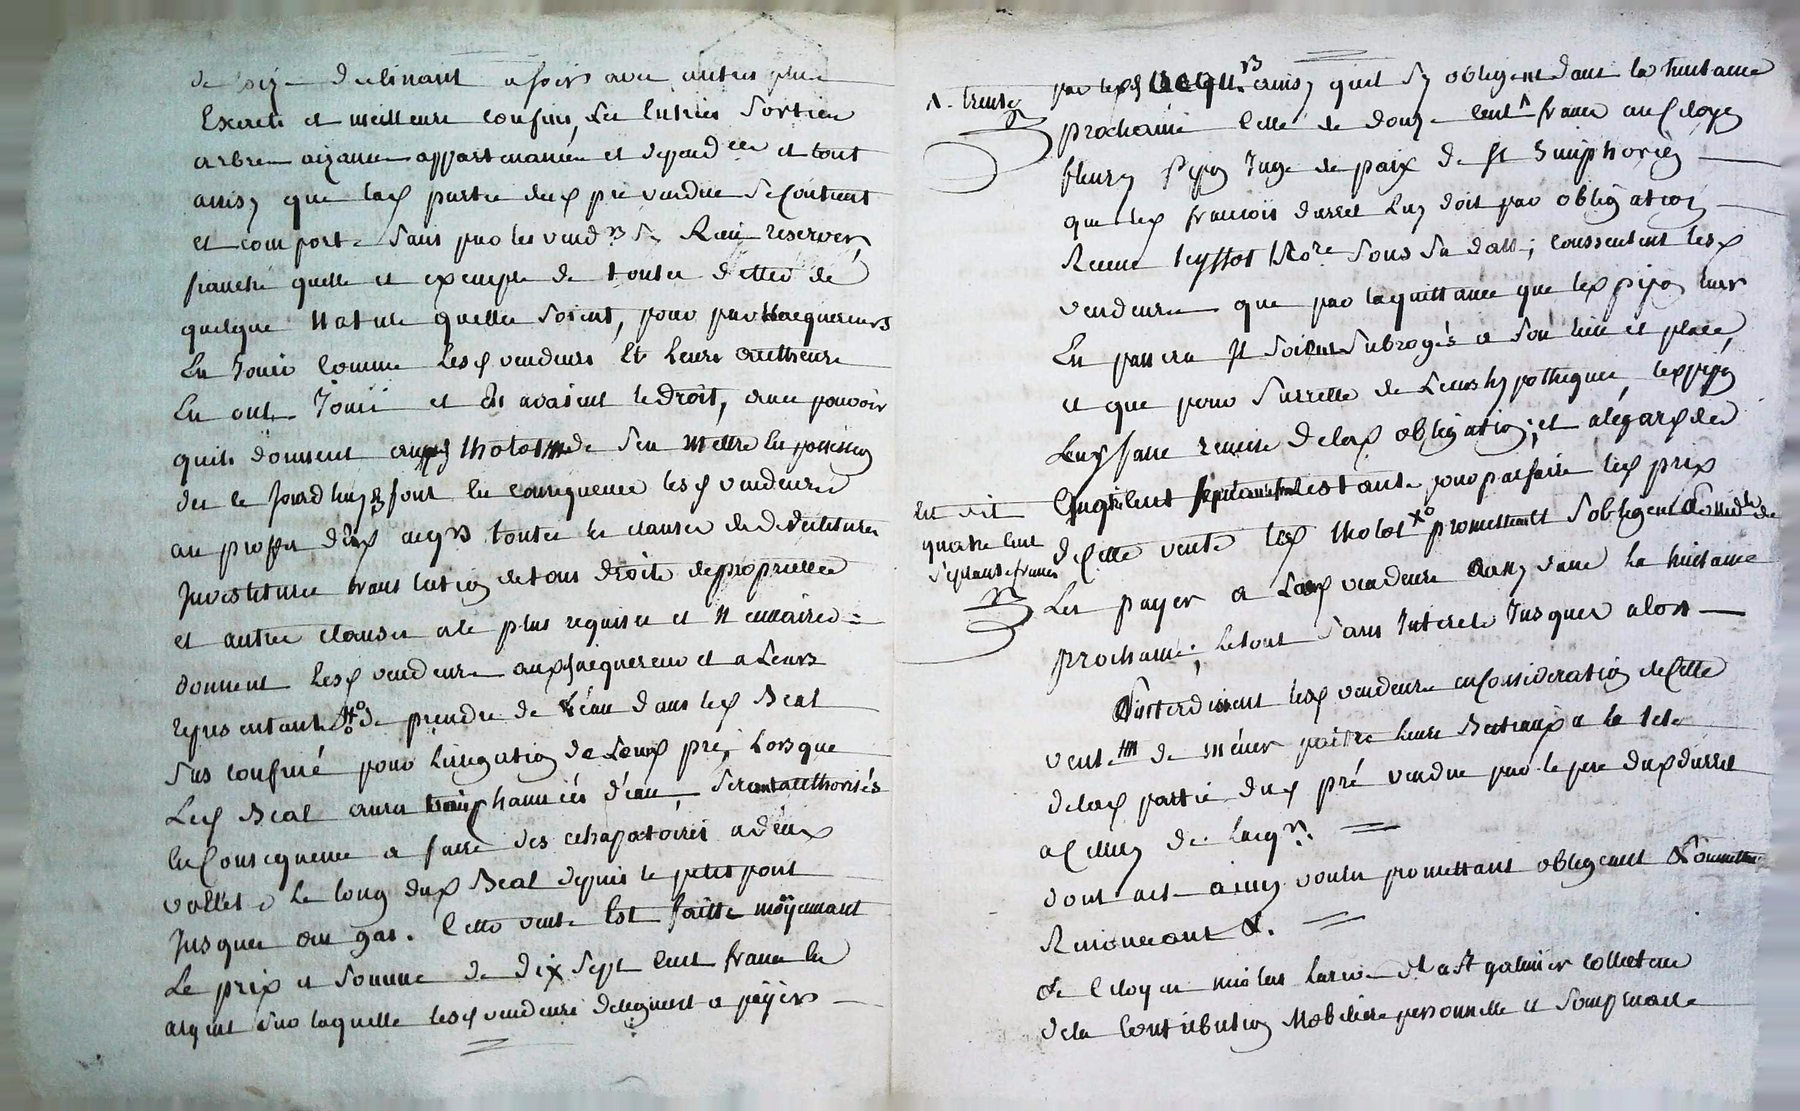 declinant a soir avec autres plus
Exacts et meilleurs confins, Les Entrées Sorties
arbres aizances appartenances et depend.ces et tout
ainsy que lad partie dud pré vendue se Contient
et comporte sans par les vend.rs sy Rien reserver,
franche quelle est exempte de toutes dettes de
quelque Nature quelles soient, pour par acquereurs
En Jouir Comme Lesd vendeurs Et Leurs autheurs
En ont Joui et En avaient le Droit, avec pouvoir
quils donnent auxd tholot de s'en mettre En possession
des ce Jourdhuy, font En consequence lesd vendeurs
au proffit desd acqrs toutes les clauses de devestitures
Investitures translation de tous droits de proprietée
et autres clauses a le plus requises et Necessaires =
donnent Lesd vendeurs auxd acquereurs et a Leurs
representants de prendre de L'éau dans led Beal
sus confiné pour L'irrigation de Leurd pré, Lorsque
Led Beal aura d'éau, Seront authorisés
En Consequence a faire des echapatoires a deux
vollets Le long dud Beal depuis le petit pont
Jusques au gas. Cette vente Est faitte moÿennant
Le prix et Somme de dix sept Cent francs En
argent sur laquelle lesd vendeurs deleguent a payer
par lesd acqu.rs ainsy quil sy obligent dans la huitaine
A. trente
prochaine Celle de douze Cent ^ francs au Citoyen
fleury pipon Juge de paix de St Simphorien
que led francois durret Luy doit par obligation
Reçue teyssot No.re sous sa datte; Consentent lesd
vendeurs que par la quittance que led pipon leur
En passera Il soient Subrogés a son lieu et place,
et que pour Surrette de Leurs hypotheques, led pipon
Leur fasse remise de lad obligation; et alégard des
restants pour parfaire led prix
En dit
quatre Cent
Septante francs
de Cette vente led tholot promettent s'obligent
Les payer a Sesd vendeurs dans la huitaine
prochaine; Le tout sans Interets Jusques alors
S'interdisent lesd vendeurs en Consideration de Cette
vente de méner paitre leurs Bestiaux a la tete
de lad partie dud pré vendue par le pere dud durret
a Celluy de l'acq.r.
dont acte ainsy voulu promettant obligeant
Renoncant &.
Le Citoyen a St galmier Collecteur
de la Contribution Mobiliere personnelle et Somptuaire